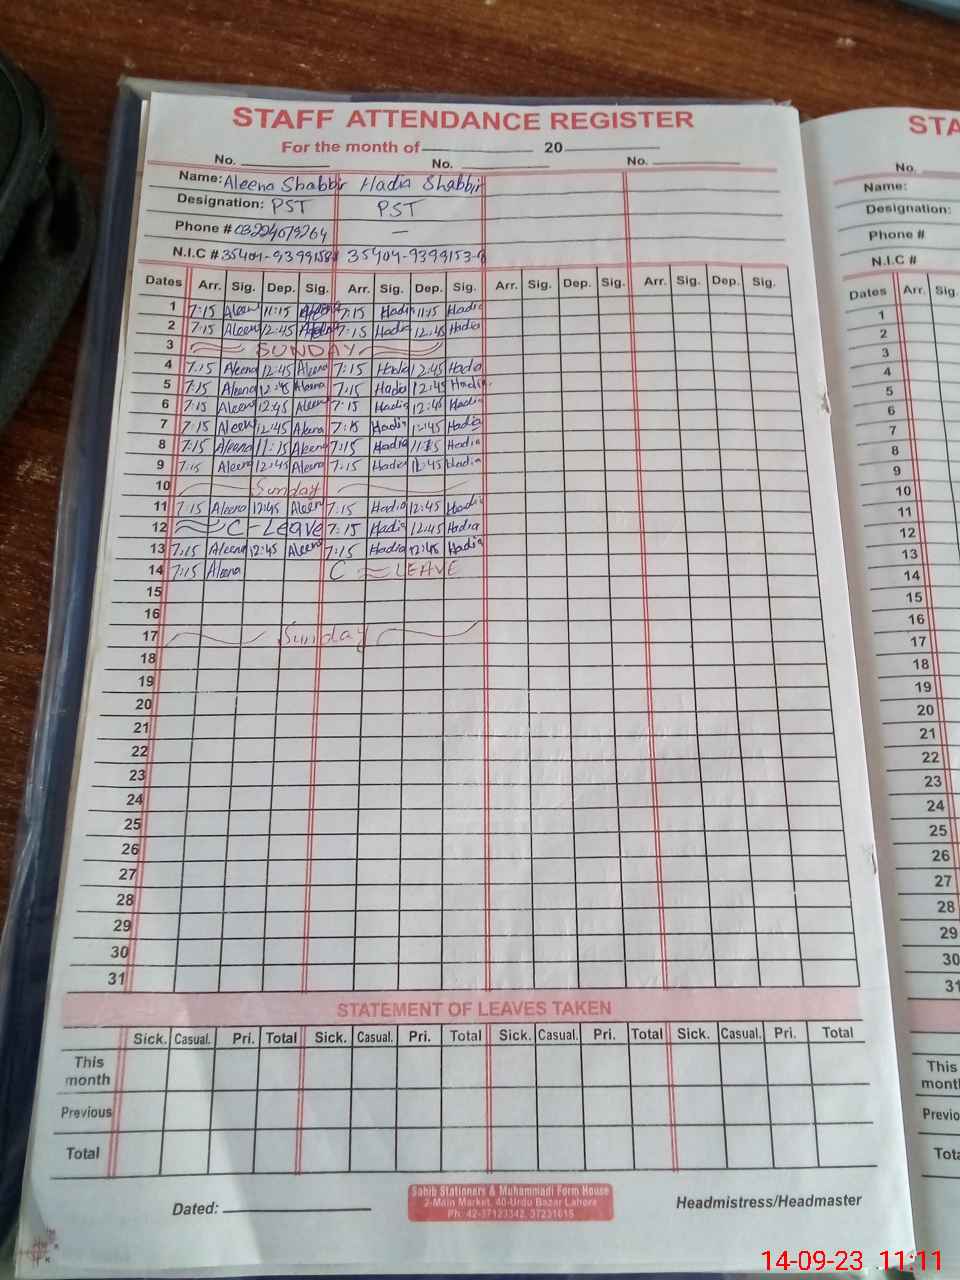 STAFF ATTENDANCE REGISTER
For the month of 20
No. No. No.
Name: Aleena Shabbir Hadia Shabbir
Designation: PST PST
Phone # 03224079264 —
N.I.C # 35404-9399158 35404-9399153-8
Dates Arr. Sig. Dep. Sig. Arr. Sig. Dep. Sig. Arr. Sig. Dep. Sig. Arr. Sig. Dep. Sig.
1 7:15 Aleena 11:15 Aleena 7:15 Hadia 11:15 Hadia
2 7:15 Aleena 12:45 Aleena 7:15 Hadia 12:45 Hadia
3 SUNDAY
4 7:15 Aleena 12:45 Aleena 7:15 Hadia 12:45 Hadia
5 7:15 Aleena 12:45 Aleena 7:15 Hadia 12:45 Hadia
6 7:15 Aleena 12:45 Aleena 7:15 Hadia 12:45 Hadia
7 7:15 Aleena 12:45 Aleena 7:15 Hadia 1:45 Hadia
8 7:15 Aleena 11:15 Aleena 7:15 Hadia 11:15 Hadia
9 7:15 Aleena 12:45 Aleena 7:15 Hadia 12:45 Hadia
10 Sunday
11 7:15 Aleena 12:45 Aleena 7:15 Hadia 12:45 Hadia
12 C - Leave 7:15 Hadia 12:45 Hadia
13 7:15 Aleena 12:45 Aleena 7:15 Hadia 12:45 Hadia
14 7:15 Aleena C LEAVE
15
16
17 Sunday
18
19
20
21
22
23
24
25
26
27
28
29
30
31
STATEMENT OF LEAVES TAKEN
Sick. Casual. Pri. Total Sick. Casual. Pri. Total Sick. Casual. Pri. Total Sick. Casual. Pri. Total
This month
Previous
Total
Dated:
Sahib Stationers & Muhammadi Form House
2-Main Market, 40-Urdu Bazar Lahore
Ph: 42-37123342, 37231615
Headmistress/Headmaster
STA
No.
Name:
Designation:
Phone #
N.I.C #
Dates Arr. Sig.
1
2
3
4
5
6
7
8
9
10
11
12
13
14
15
16
17
18
19
20
21
22
23
24
25
26
27
28
29
30
31
This
mont
Previo
Tota
14-09-23 11:11